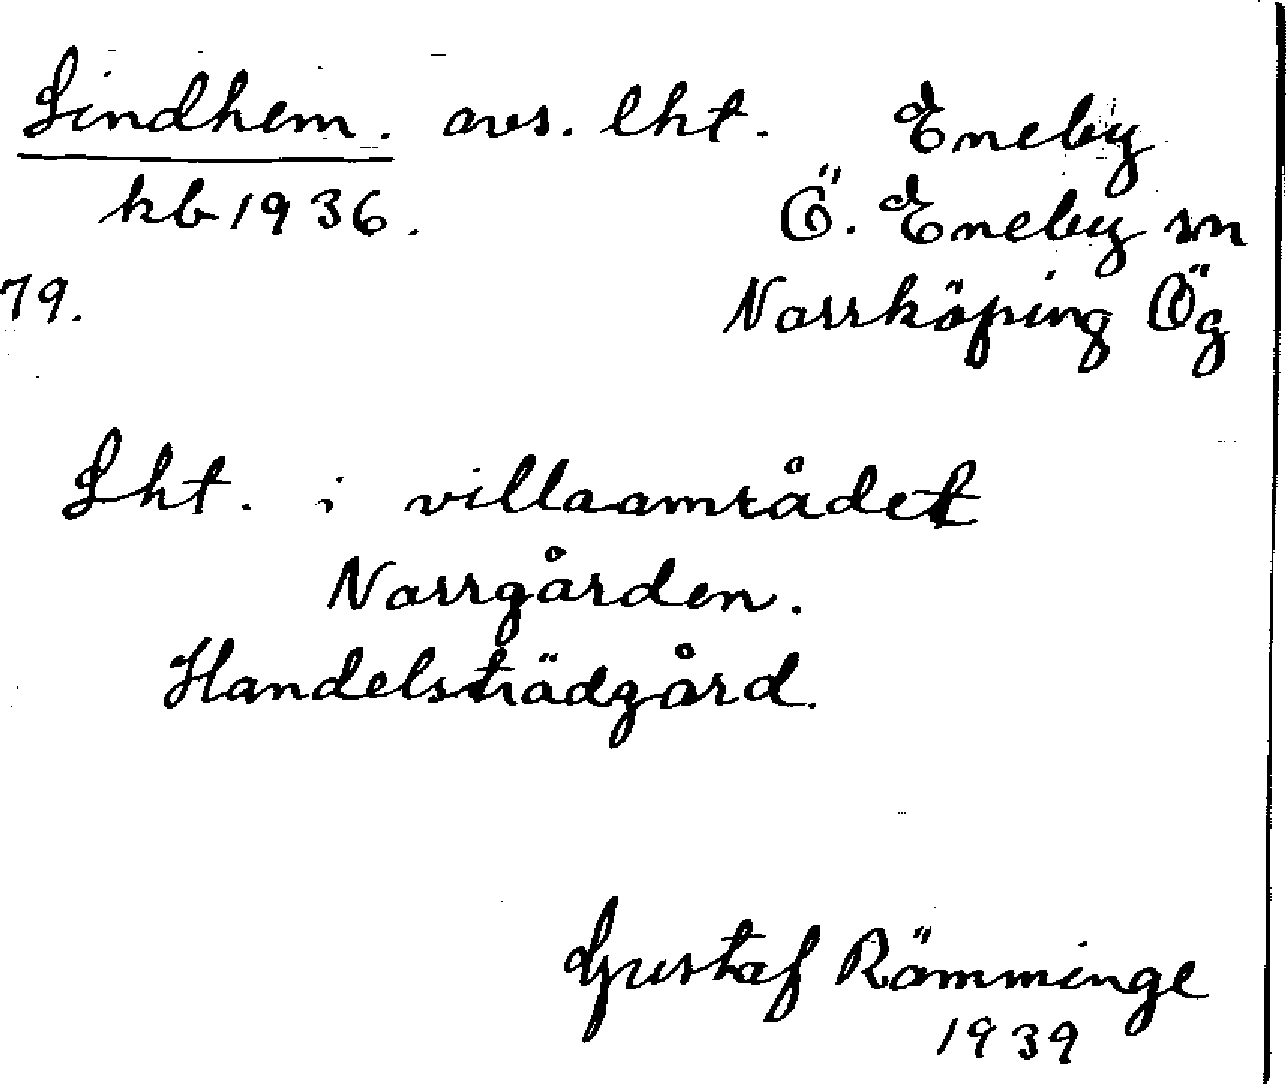 Lindhem. avs. lht. Eneby
kb 1936. Ö. Eneby sn
79. Norrköping Ög
Lht. i villaområdet
Norrgården.
Handelsträdgård.
Gustaf Römminge
1939